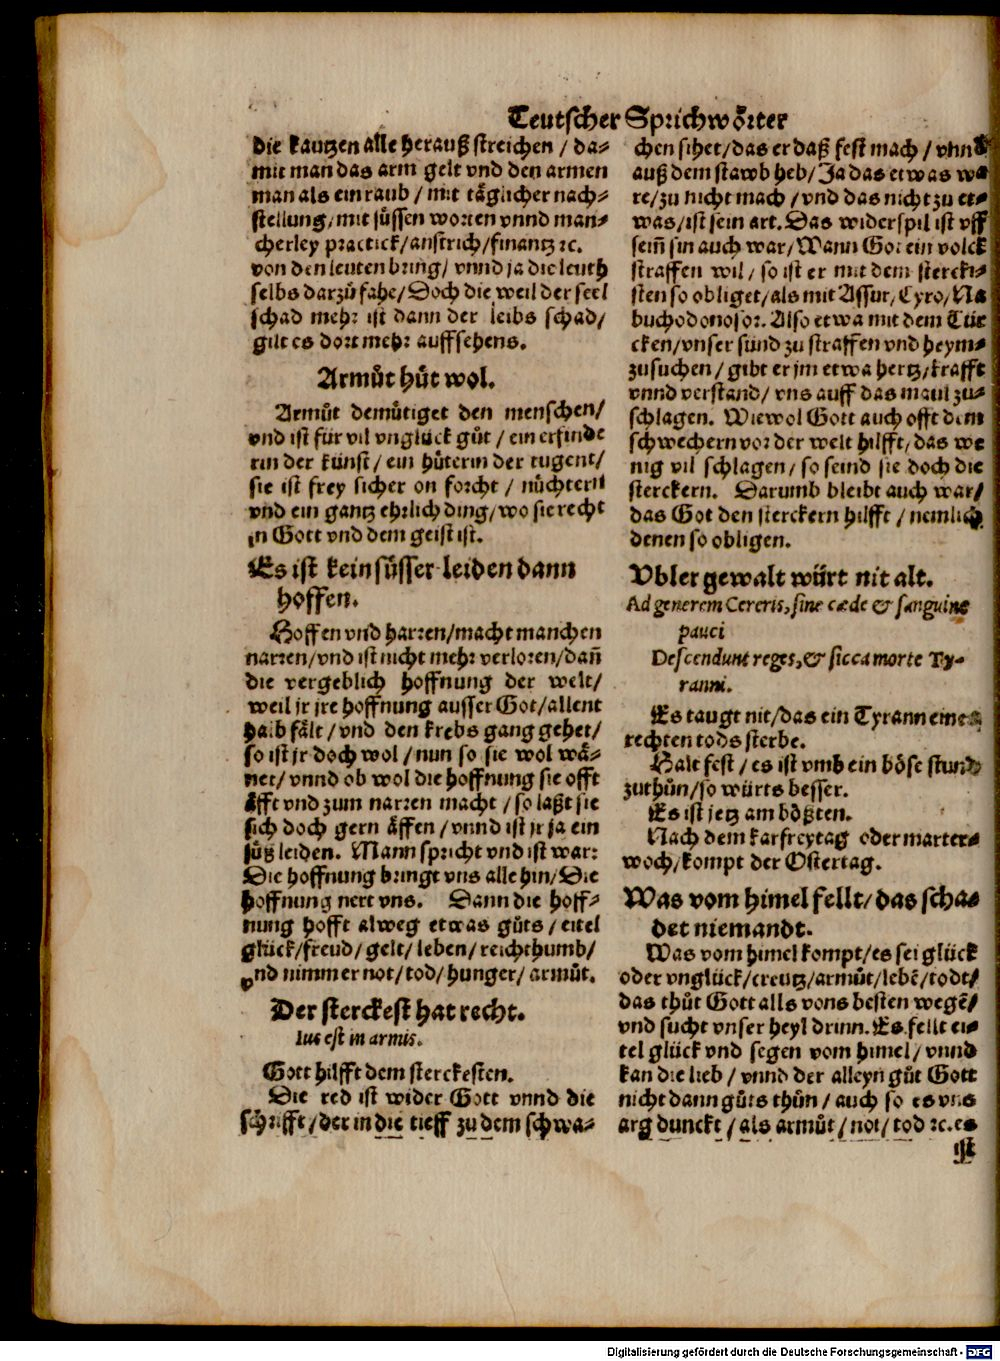 Teutscher Sprichwörter
die kautzen alle herauß streichen / da⸗
mit man das arm gelt vnd den armen
man als ein raub / mit täglicher nach⸗
stellung, mit süssen worten vnnd man⸗
cherley practick/anstrich/finantz ꝛc.
von den leuten bring/ vnnd ja die leuth
selbs darzů fahe/Doch die weil der seel
schad mehr ist dann der leibs schad/
gilt es dort mehr auffsehens.
Armůt hůt wol.
Armůt demůtiget den menschen/
vnd ist für vil vnglück gůt / ein erfinde
rin der künst / ein hůterin der tugent/
sie ist frey sicher on forcht / nüchtern
vnd ein gantz ehrlich ding/wo sie recht
in Gott vnd dem geist ist.
Es ist kein süsser leiden dann
hoffen.
Hoffen vnd harren/macht manchen
narren/vnd ist nicht mehr verloren/dañ
die vergeblich hoffnung der welt/
weil jr jre hoffnung ausser Got/allent
halb fält/vnd den krebs gang gehet/
so ist jr doch wol / nun so sie wol wä⸗
net/ vnnd ob wol die hoffnung sie offt
äfft vnd zum narren macht / so laßt sie
sich doch gern äffen / vnnd ist jr ja ein
süß leiden. Mann spricht vnd ist war:
Die hoffnung bringt vns alle hin/Die
hoffnung nert vns. Dann die hoff⸗
nung hofft alweg etwas gůts / eitel
glück/freud/gelt/leben/reichthumb/
vnd nimmer not/tod/hunger/armůt.
Der sterckest hat recht.
Ius est in armis.
Gott hilfft dem sterckesten.
Die red ist wider Gott vnnd die
schrifft/der in die tieff zu dem schwa⸗
chen sihet/das er daß fest mach / vnnd
auß dem stawb heb/Ja das etwas wa
re/zu nicht mach / vnd das nicht zu et⸗
was/ist sein art. Das widerspil ist vff
seim̃ sin auch war/Wann Got ein volck
straffen wil / so ist er mit dem sterck⸗
sten so obliget/als mit Assur, Cyro, Na
buchodonosor. Also etwa mit dem Tür
cken/vnser sünd zu straffen vnd heym⸗
zusuchen / gibt er jm etwa hertz/krafft
vnnd verstand/ vns auff das maul zu⸗
schlagen. Wiewol Gott auch offt dem
schwechern vor der welt hilfft/das we
nig vil schlagen / so seind sie doch die
sterckern. Darumb bleibt auch war/
das Got den sterckern hilfft / nemlich
denen so obligen.
Vbler gewalt würt nit alt.
Ad generem Cereris, sine cæde & sanguine
pauci
Descendunt reges, & sicca morte Ty-
ranni.
Es taugt nit/das ein Tyrann eines
rechten tods sterbe.
Halt fest / es ist vmb ein böse stund
zuthůn/so würts besser.
Es ist jetz am bößten.
Nach dem karfreytag oder marter⸗
woch/kompt der Ostertag.
Was vom himel fellt/das scha⸗
det niemandt.
Was vom himel kompt/es sei glück
oder vnglück/creutz/armůt/lebẽ/todt/
das thůt Gott alls vons besten wegẽ/
vnd sucht vnser heyl drinn. Es fellt ei⸗
tel glück vnd segen vom himel / vnnd
kan die lieb / vnnd der alleyn gůt Gott
nicht dann gůts thůn / auch so es vns
arg dunckt / als armůt / not / tod ꝛc. es
ist
Digitalisierung gefördert durch die Deutsche Forschungsgemeinschaft - DFG